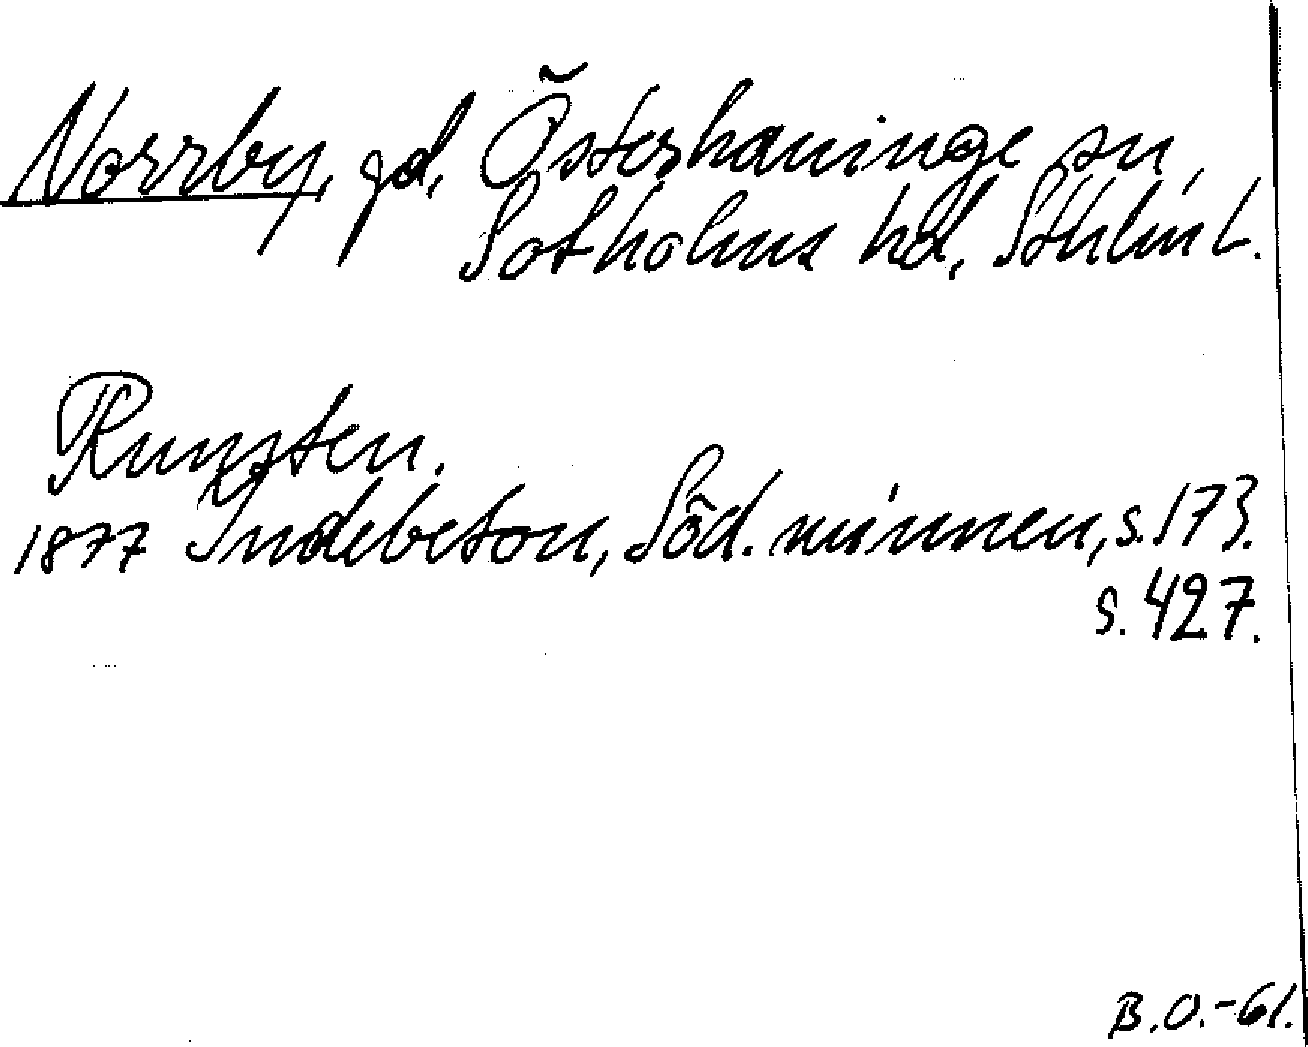 Norrby, gd, Österhaninge sn,
Sotholms hd, Sthlms L.
Runsten.
1877 Indebetou, Söd. minnen, s. 173.
s. 427.
B.O.-61.